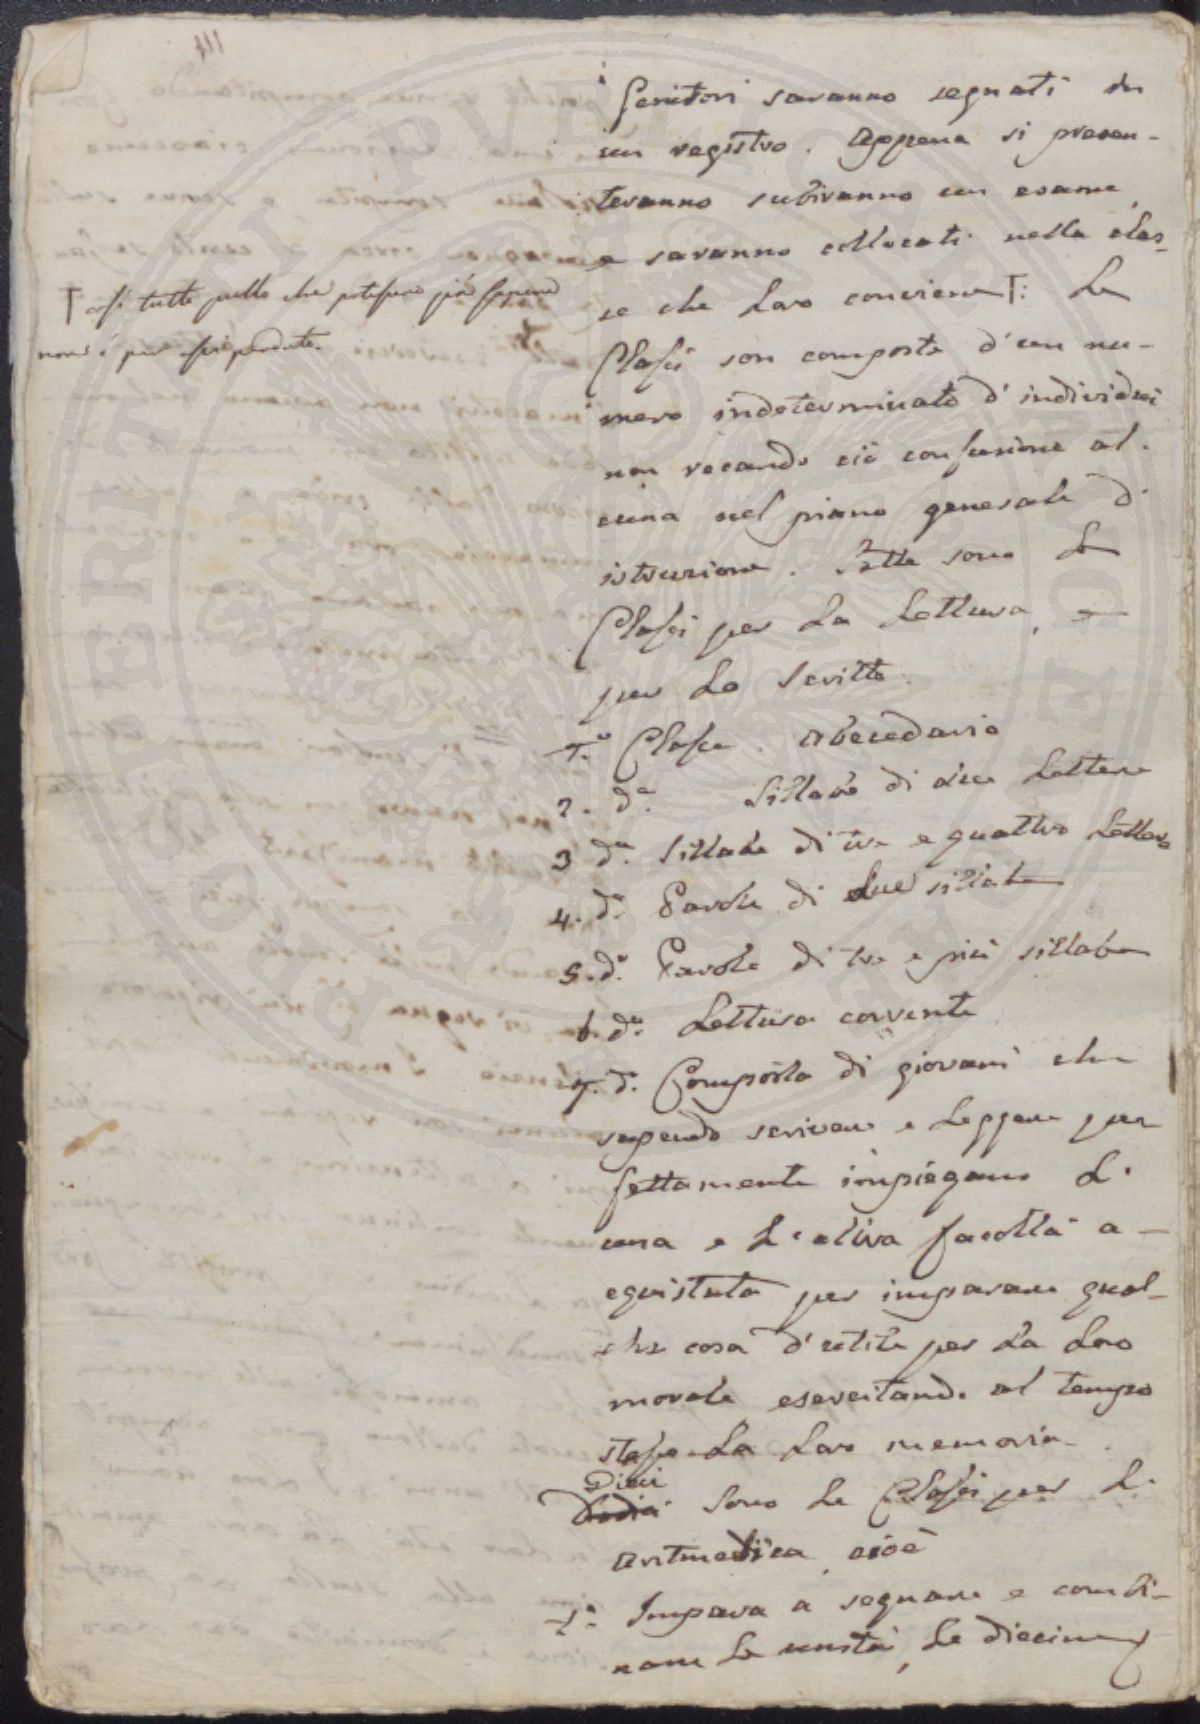 111
i Genitori saranno segnati in
un registro. Appena si presen-
teranno subiranno un esame,
e saranno collocati nella clas-
se che loro conviene †: Le
Classi son composte d'un nu-
mero indeterminato d'individui
non recando ciò confusione al-
cuna nel piano generale d'
istruzione. Sette sono le
Classi per la Lettura, e
per lo Scritto.
1.a Classe. Abecedario
2. da. Sillabe di due Lettere
3 da. Sillabe di tre e quattro Lettere
4. da. Parole di due sillabe
5. da. Parole di tre e più sillabe
6. da. Lettura corrente
7. da. Composta di giovani che
sapendo scrivere e Leggere per
fettamente impiegano l'
una e l'altra facoltà a-
cquistata per imparare qual-
che cosa d'utile per la loro
morale esercitando al tempo
stesso la loro memoria.
Dieci
Sono le Classi per l'
aritmetica, cioè
1a. Impara a segnare e combi-
nare le unità, le diecine,
† così tutto quello che potessero già sapere
non è per essi perduto.